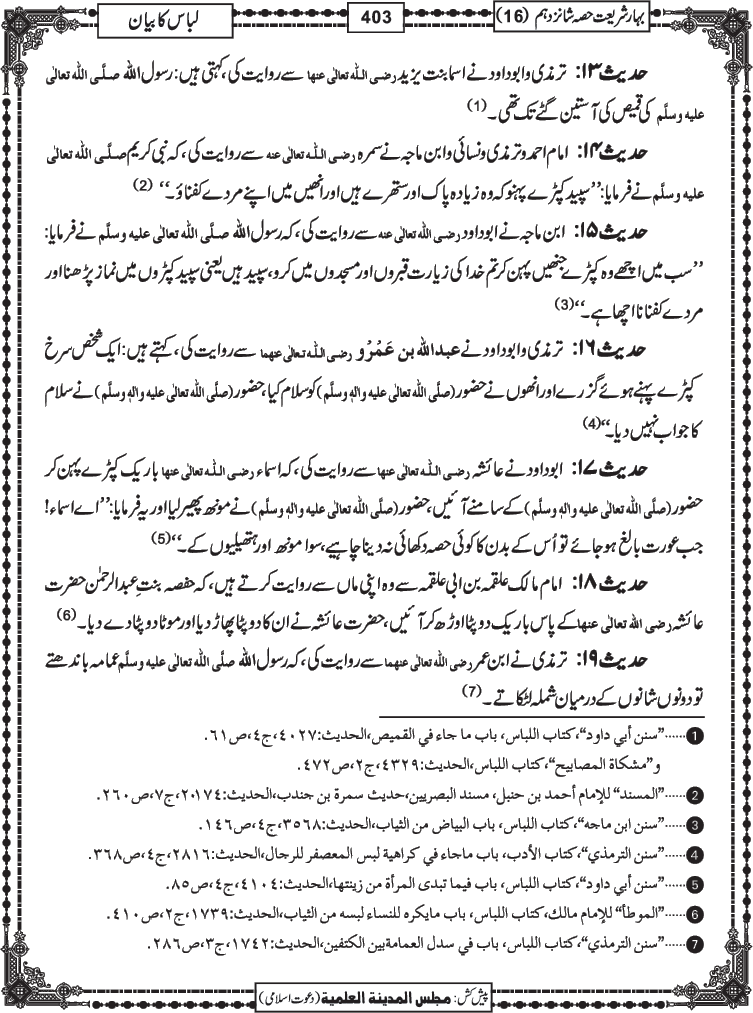 بہار شریعت حصہ شانزدہم (16)
403
لباس کا بیان
حدیث ۱۳: ترمذی و ابو داود نے اسما بنت یزید رضی اللہ تعالٰی عنہا سے روایت کی، کہتی ہیں: رسول اللہ صلَّی اللہ تعالٰی
علیہ وسلَّم کی قمیص کی آستین گٹے تک تھی۔(1)
حدیث ۱۴: امام احمد و ترمذی و نسائی و ابن ماجہ نے سمرہ رضی اللہ تعالٰی عنہ سے روایت کی، کہ نبی کریم صلَّی اللہ تعالٰی
علیہ وسلَّم نے فرمایا: ’’سپید کپڑے پہنو کہ وہ زیادہ پاک اور ستھرے ہیں اور انھیں میں اپنے مردے کفناؤ۔‘‘ (2)
حدیث ۱۵: ابن ماجہ نے ابو داود رضی اللہ تعالٰی عنہ سے روایت کی، کہ رسول اللہ صلَّی اللہ تعالٰی علیہ وسلَّم نے فرمایا:
’’سب میں اچھے وہ کپڑے جنھیں پہن کر تم خدا کی زیارت قبروں اور مسجدوں میں کرو، سپید ہیں یعنی سپید کپڑوں میں نماز پڑھنا اور
مردے کفنانا اچھا ہے۔‘‘(3)
حدیث ۱۶: ترمذی و ابو داود نے عبداللہ بن عَمْرْو رضی اللہ تعالٰی عنہما سے روایت کی، کہتے ہیں: ایک شخص سرخ
کپڑے پہنے ہوئے گزرے اور انھوں نے حضور (صلَّی اللہ تعالٰی علیہ والہٖ وسلَّم) کو سلام کیا، حضور (صلَّی اللہ تعالٰی علیہ والہٖ وسلَّم) نے سلام
کا جواب نہیں دیا۔‘‘(4)
حدیث ۱۷: ابو داود نے عائشہ رضی اللہ تعالٰی عنہا سے روایت کی، کہ اسماء رضی اللہ تعالٰی عنہا باریک کپڑے پہن کر
حضور (صلَّی اللہ تعالٰی علیہ والہٖ وسلَّم) کے سامنے آئیں، حضور (صلَّی اللہ تعالٰی علیہ والہٖ وسلَّم) نے مونھ پھیر لیا اور یہ فرمایا: ’’اے اسماء!
جب عورت بالغ ہو جائے تو اُس کے بدن کا کوئی حصہ دکھائی نہ دینا چاہیے، سوا مونھ اور ہتھیلیوں کے۔‘‘(5)
حدیث ۱۸: امام مالک علقمہ بن ابی علقمہ سے وہ اپنی ماں سے روایت کرتے ہیں، کہ حفصہ بنتِ عبدالرحمٰن حضرت
عائشہ رضی اللہ تعالٰی عنہا کے پاس باریک دوپٹا اوڑھ کر آئیں، حضرت عائشہ نے ان کا دوپٹا پھاڑ دیا اور موٹا دوپٹا دے دیا۔(6)
حدیث ۱۹: ترمذی نے ابن عمر رضی اللہ تعالٰی عنہما سے روایت کی، کہ رسول اللہ صلَّی اللہ تعالٰی علیہ وسلَّم عمامہ باندھتے
تو دونوں شانوں کے درمیان شملہ لٹکاتے۔(7)
1 ......”سنن أبي داود“، کتاب اللباس، باب ما جاء في القمیص، الحدیث: ٤٠٢٧، ج٤، ص٦١.
و”مشکاۃ المصابیح“، کتاب اللباس، الحدیث: ٤٣٢٩، ج٢، ص٤٧٢.
2 ......”المسند“ للإمام أحمد بن حنبل، مسند البصریین، حدیث سمرۃ بن جندب، الحدیث: ٢٠١٧٤، ج٧، ص٢٦٠.
3 ......”سنن ابن ماجه“، کتاب اللباس، باب البیاض من الثیاب، الحدیث: ٣٥٦٨، ج٤، ص١٤٦.
4 ......”سنن الترمذي“، کتاب الأدب، باب ماجاء في کراهیة لبس المعصفر للرجال، الحدیث: ٢٨١٦، ج٤، ص٣٦٨.
5 ......”سنن أبي داود“، کتاب اللباس، باب فیما تبدی المرأۃ من زینتها، الحدیث: ٤١٠٤، ج٤، ص٨٥.
6 ......”الموطأ“ للإمام مالك، کتاب اللباس، باب مایکره للنساء لبسه من الثیاب، الحدیث: ١٧٣٩، ج٢، ص٤١٠.
7 ......”سنن الترمذي“، کتاب اللباس، باب في سدل العمامة بین الکتفین، الحدیث: ١٧٤٢، ج٣، ص٢٨٦.
پیش کش: مجلس المدینة العلمیة (دعوت اسلامی)